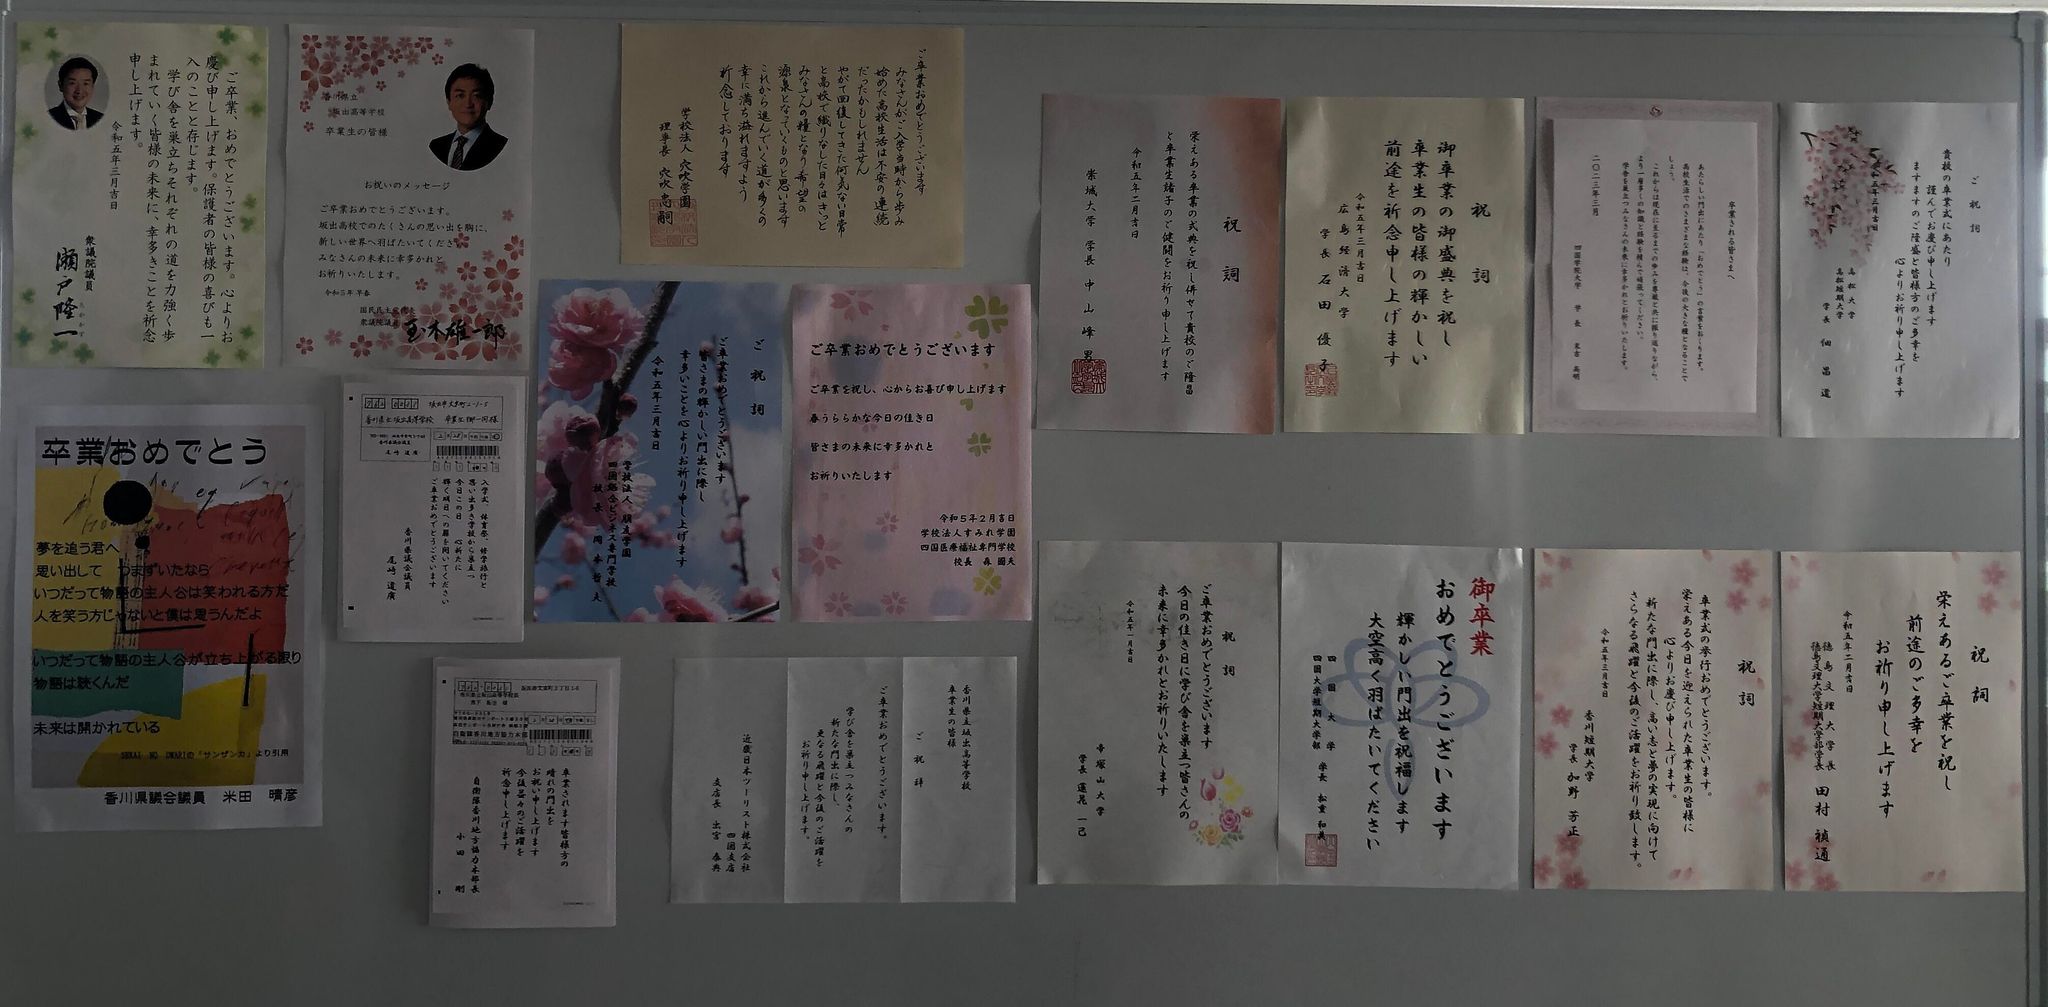 ご卒業、おめでとうございます。心よりお
慶び申し上げます。保護者の皆様の喜びも一
入のことと存じます。
学び舎を巣立ちそれぞれの道を力強く歩
まれていく皆様の未来に、幸多きことを祈念
申し上げます。
令和五年三月吉日
衆議院議員
瀬戸隆一
香川県立
坂出高等学校
卒業生の皆様
お祝いのメッセージ
ご卒業おめでとうございます。
坂出高校でのたくさんの思い出を胸に、
新しい世界へ羽ばたいてくださ
みなさんの未来に幸多かれと
お祈りいたします。
令和5年 早春
国民民主党代表
衆議院議員
玉木雄一郎
ご卒業おめでとうございます
みなさんがご入学当時から歩み
始めた高校生活は不安の連続
だったかもしれません
やがて回復してきた何気ない日常
と高校で織りなした日々はきっと
みなさんの糧となり希望の
源泉となっていくものと思います
これから進んでいく道が多くの
幸に満ち溢れますよう
祈念しております
学校法人 穴吹学園
理事長 穴吹 高嗣
祝詞
栄えある卒業の式典を祝し併せて貴校のご隆昌
と卒業生諸子のご健闘をお祈り申し上げます
令和五年二月吉日
崇城大学 学長 中山峰男
祝詞
御卒業の御盛典を祝し
卒業生の皆様の輝かしい
前途を祈念申し上げます
令和五年三月吉日
広島経済大学
学長 石田優子
卒業される皆さまへ
あたらしい門出にあたり「おめでとう」の言葉をおくります。
高校生活でのさまざまな経験は、今後の大きな糧となることで
しょう。
これからは現在に至るまでの歩みを専敬と共に振り返りながら、
より一層多くの知識と経験を積んで頑張ってください。
学舎を巣立つみなさんの未来に幸多かれとお祈りいたします。
二〇二三年三月
四国学院大学 学長 末吉 高明
ご祝詞
貴校の卒業式にあたり
謹んでお慶び申し上げます
ますますのご隆盛と皆様方のご多幸を
心よりお祈り申し上げます
令和五年三月吉日
高松大学
高松短期大学
学長 佃 昌道
卒業おめでとう
夢を追う君へ
思い出して つまずいたなら
いつだって物語の主人公は笑われる方だ
人を笑う方じゃないと僕は思うんだよ
いつだって物語の主人公が立ち上がる限り
物語は続くんだ
未来は開かれている
SEKAI NO OWARIの「サンザンカ」より引用
香川県議会議員 米田 晴彦
坂出市文京町2-1-5
香川県立坂出高等学校 卒業生御一同様
香川県議会議員
尾崎 道廣
入学式、体育祭、修学旅行と
思い出多き学校から巣立つ
今日この日 心新たに
輝く明日への扉を開いてください
ご卒業おめでとうございます
香川県議会議員
尾崎 道廣
ご祝詞
ご卒業おめでとうございます
皆さまの輝かしい門出に際し
幸多いことを心よりお祈り申し上げます
令和五年三月吉日
学校法人 朋友学園
四国総合ビジネス専門学校
校長 岡本哲夫
ご卒業おめでとうございます
ご卒業を祝し、心からお喜び申し上げます
春うららかな今日の佳き日
皆さまの未来に幸多かれと
お祈りいたします
令和5年2月吉日
学校法人すみれ学園
四国医療福祉専門学校
校長 森 國夫
坂出市文京町2丁目1-5
香川県立坂出高等学校長
自衛隊香川地方協力本部
卒業されます皆様方の
晴れの門出を
お祝い申し上げます
今後益々のご活躍を
祈念申し上げます
自衛隊香川地方協力本部長
小田 剛
香川県立坂出高等学校
卒業生の皆様
ご祝辞
ご卒業おめでとうございます。
学び舎を巣立つみなさんの
新たな門出に際し、
更なる飛躍と今後のご活躍を
お祈り申し上げます。
近畿日本ツーリスト株式会社
四国支店
支店長 出宮 泰典
祝詞
ご卒業おめでとうございます
今日の佳き日に学び舎を巣立つ皆さんの
未来に幸多かれとお祈りいたします
令和五年一月吉日
帝塚山大学
学長 蓮花 一己
御卒業
おめでとうございます
輝かしい門出を祝福します
大空高く羽ばたいてください
四国大学
四国大学短期大学部
学長 松重 和美
祝詞
卒業式の挙行おめでとうございます。
栄えある今日を迎えられた卒業生の皆様に
心よりお慶び申し上げます。
新たな門出に際し、高い志と夢の実現に向けて
さらなる飛躍と今後のご活躍をお祈り致します。
令和五年三月吉日
香川短期大学
学長 加野 芳正
祝詞
栄えあるご卒業を祝し
前途のご多幸を
お祈り申し上げます
令和五年二月吉日
徳島文理大学長
徳島文理大学短期大学部学長
田村 禎通